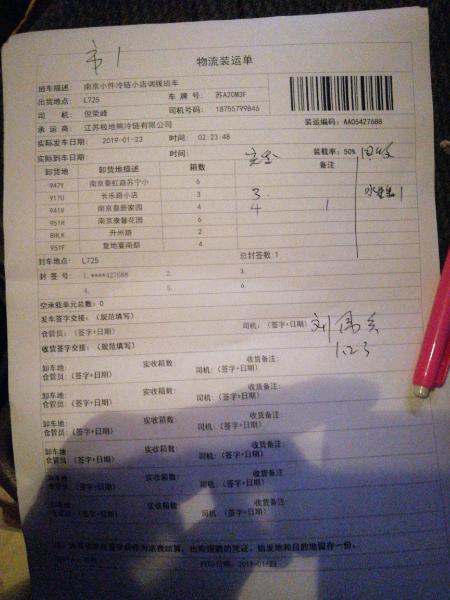 市1
物流装运单
班车描述: 南京小件冷链小店调拨班车
出货地点: L725 车 牌 号: 苏AZ0M3F
司 机: 倪荣峰 司机号码: 18755799846
承 运 商: 江苏极地熊冷链有限公司 装运编码: AA05427688
实际发车日期: 2019-01-23 时间: 02:23:48
实际到车日期: 时间: 装载率: 50%
卸货地 卸货地描述 箱数 备注
947Y 南京秦虹路苏宁小 6
917U 长乐路小店 3 3
941V 南京秦新家园 4 4 1
951H 南京康馨花园 6
8HLK 升州路 2
951F 复地宴南都 4
封车地点: L725 总封签数:1
封 签 号: 1.****427688 2. 3.
4. 5. 6.
空承载单元总数: 0
发车签字交接: (规范填写)
仓管员: (签字+日期) 司机: (签字+日期) 刘
1.23
收货签字交接: (规范填写)
卸车地: 实收箱数: 收货备注:
仓管员: (签字+日期) 司机: (签字+日期)
卸车地: 实收箱数: 收货备注:
仓管员: (签字+日期) 司机: (签字+日期)
卸车地: 实收箱数: 收货备注:
仓管员: (签字+日期) 司机: (签字+日期)
卸车地: 实收箱数: 收货备注:
仓管员: (签字+日期) 司机: (签字+日期)
卸车地: 实收箱数: 收货备注:
仓管员: (签字+日期) 司机: (签字+日期)
卸车地: 实收箱数: 收货备注:
仓管员: (签字+日期) 司机: (签字+日期)
作为运费结算、出险理赔的凭证, 始发地和目的地留存一份。
打印日期: 2019-01-23